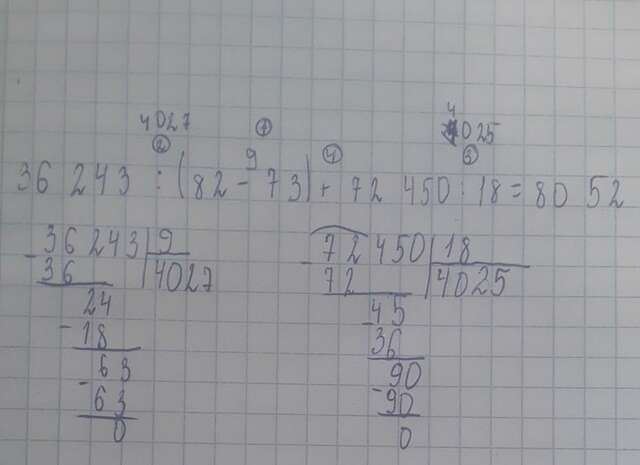 4027 4025
② ① ④ ③
9
36 243 : (82 - 73) + 72 450 : 18 = 80 52
- 36243 | 9 - 72 450 | 18
36 | 4027 72 | 4025
24 - 45
- 18 36
63 90
- 63 - 90
0 0